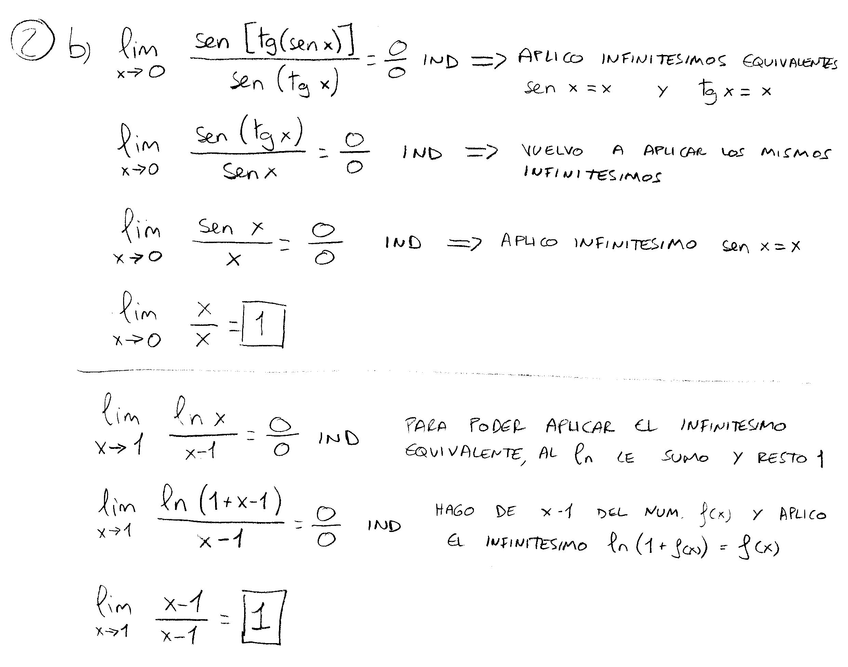 ② b) lim x→0 sen [tg(sen x)] / sen (tg x) = 0/0 IND => APLICO INFINITESIMOS EQUIVALENTES
sen x = x Y tg x = x
lim x→0 sen (tg x) / sen x = 0/0 IND => VUELVO A APLICAR LOS MISMOS
INFINITESIMOS
lim x→0 sen x / x = 0/0 IND => APLICO INFINITESIMO sen x = x
lim x→0 x / x = 1
lim x→1 ln x / x-1 = 0/0 IND PARA PODER APLICAR EL INFINITESIMO
EQUIVALENTE, AL ln LE SUMO Y RESTO 1
lim x→1 ln (1+x-1) / x-1 = 0/0 IND HAGO DE x-1 DEL NUM. f(x) Y APLICO
EL INFINITESIMO ln (1+f(x)) = f(x)
lim x→1 x-1 / x-1 = 1